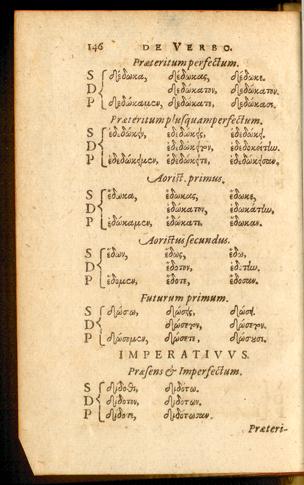 146 DE VERBO.
Præteritum perfectum.
S δέδωκα, δέδωκας, δέδωκε.
D δεδώκατον, δεδώκατον.
P δεδώκαμεν, δεδώκατε, δεδώκασι.
Præteritum plusquamperfectum.
S ἐδεδώκειν, ἐδεδώκεις, ἐδεδώκει.
D ἐδεδώκειτον, ἐδεδωκείτην.
P ἐδεδώκειμεν, ἐδεδώκειτε, ἐδεδώκεισαν.
Aorist. primus.
S ἔδωκα, ἔδωκας, ἔδωκε,
D ἐδώκατον, ἐδωκάτην,
P ἐδώκαμεν, ἐδώκατε, ἔδωκαν.
Aoristus secundus.
S ἔδων, ἔδως, ἔδω,
D ἔδοτον, ἐδότην,
P ἔδομεν, ἔδοτε, ἔδοσαν.
Futurum primum.
S δώσω, δώσεις, δώσει.
D δώσετον, δώσετον.
P δώσομεν, δώσετε, δώσουσι.
IMPERATIVVS.
Præsens & Imperfectum.
S δίδοθι, διδότω.
D δίδοτον, διδότων.
P δίδοτε, διδότωσαν.
Præteri-